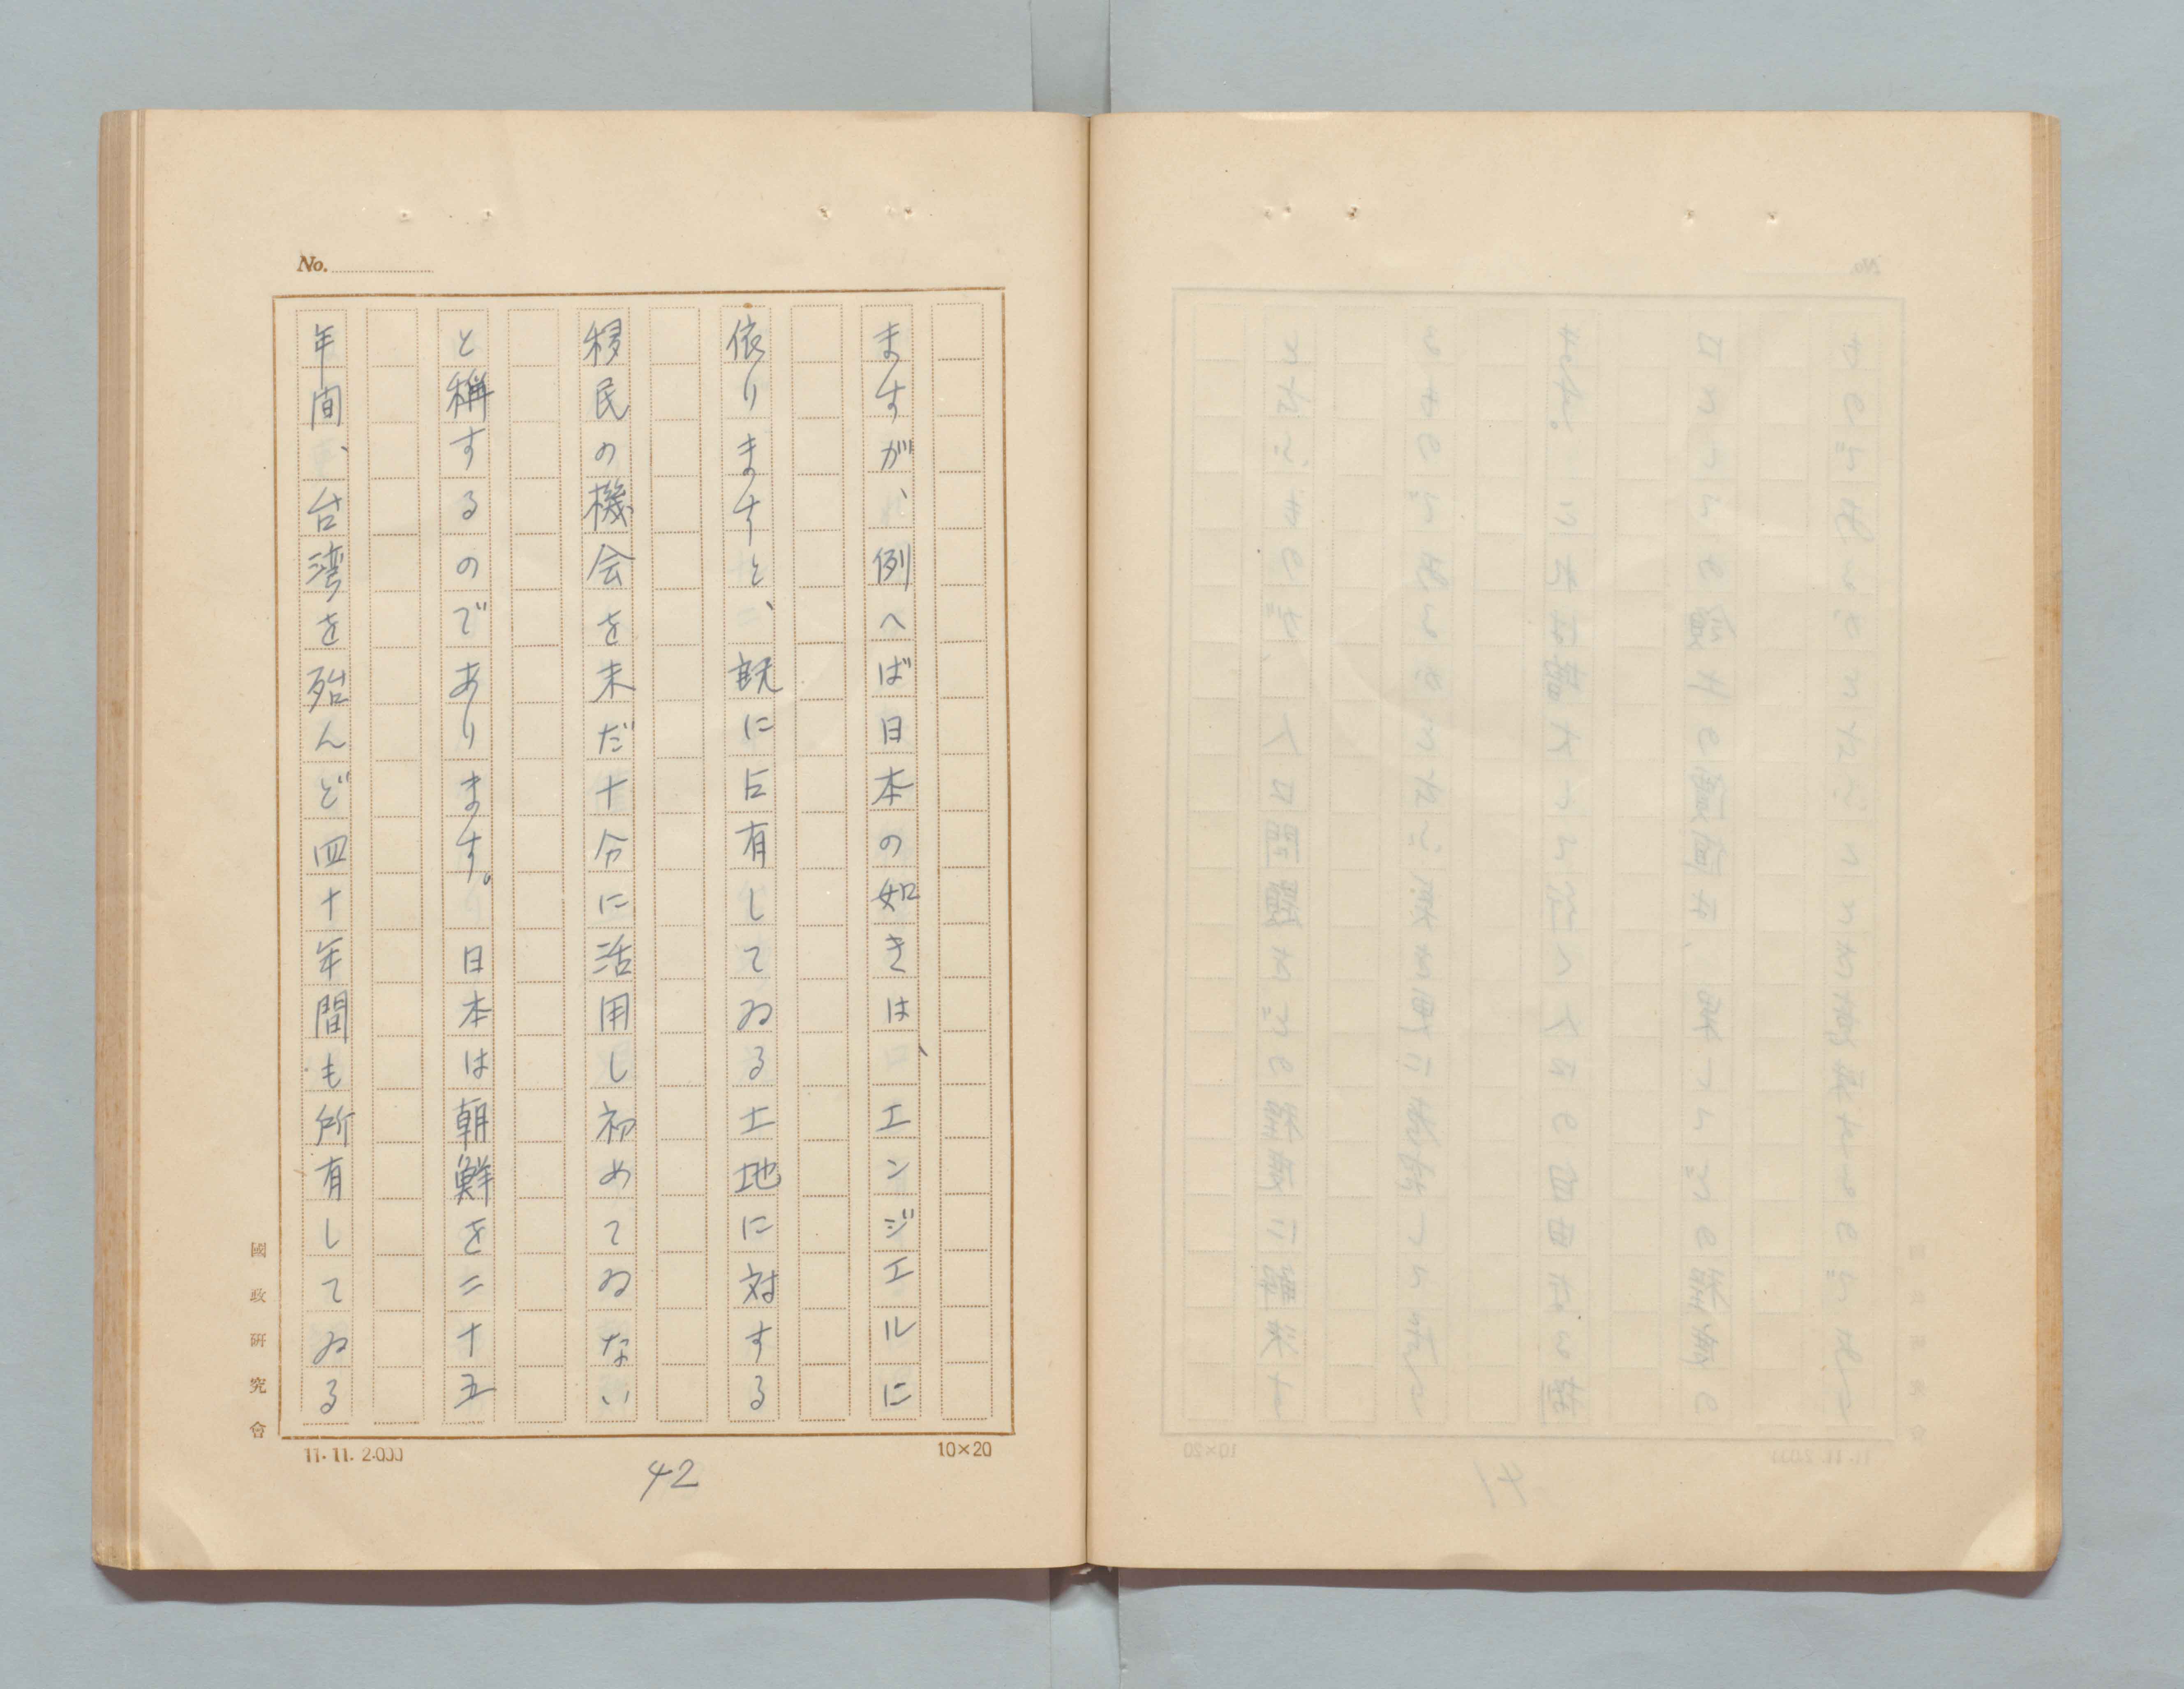 No.
ますが、例へば日本の如きは、エンジエルに
依りますと、既に占有してゐる土地に対する
移民の機会を未だ十分に活用し初めてゐない
と稱するのであります。日本は朝鮮を二十五
年間、台湾を殆んど四十年間も所有してゐる
國政研究會
11.11.2.000
10×20
42